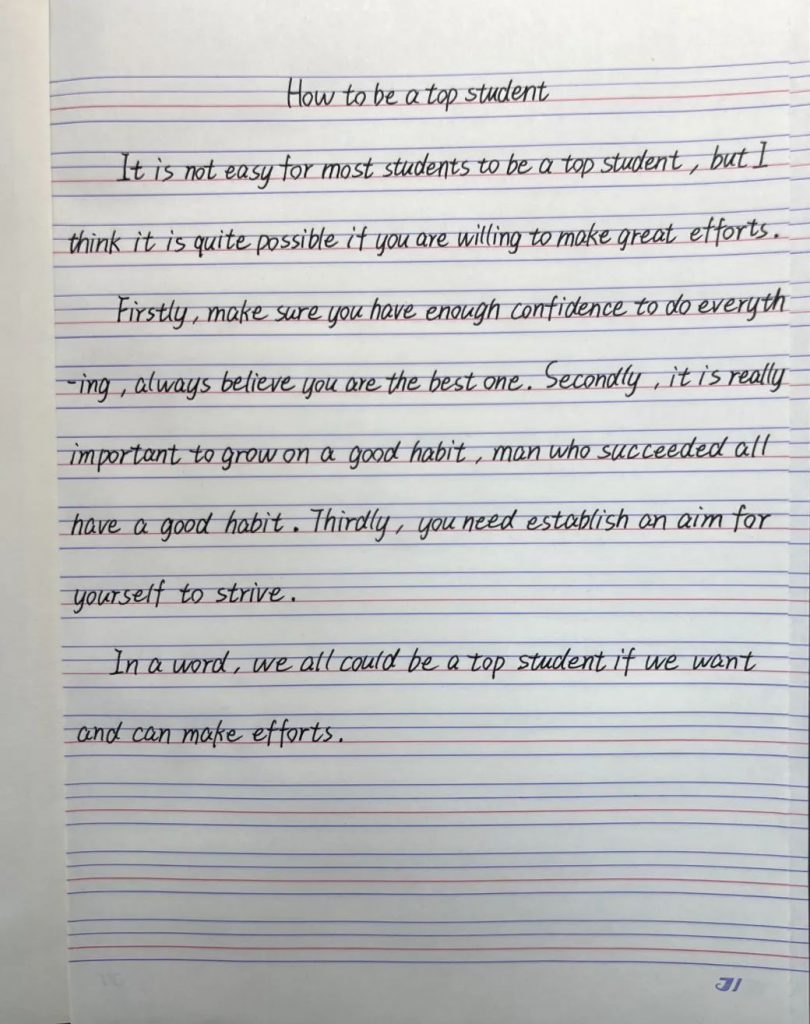 How to be a top student
It is not easy for most students to be a top student, but I
think it is quite possible if you are willing to make great efforts.
Firstly, make sure you have enough confidence to do everyth
-ing, always believe you are the best one. Secondly, it is really
important to grow on a good habit, man who succeeded all
have a good habit. Thirdly, you need establish an aim for
yourself to strive.
In a word, we all could be a top student if we want
and can make efforts.